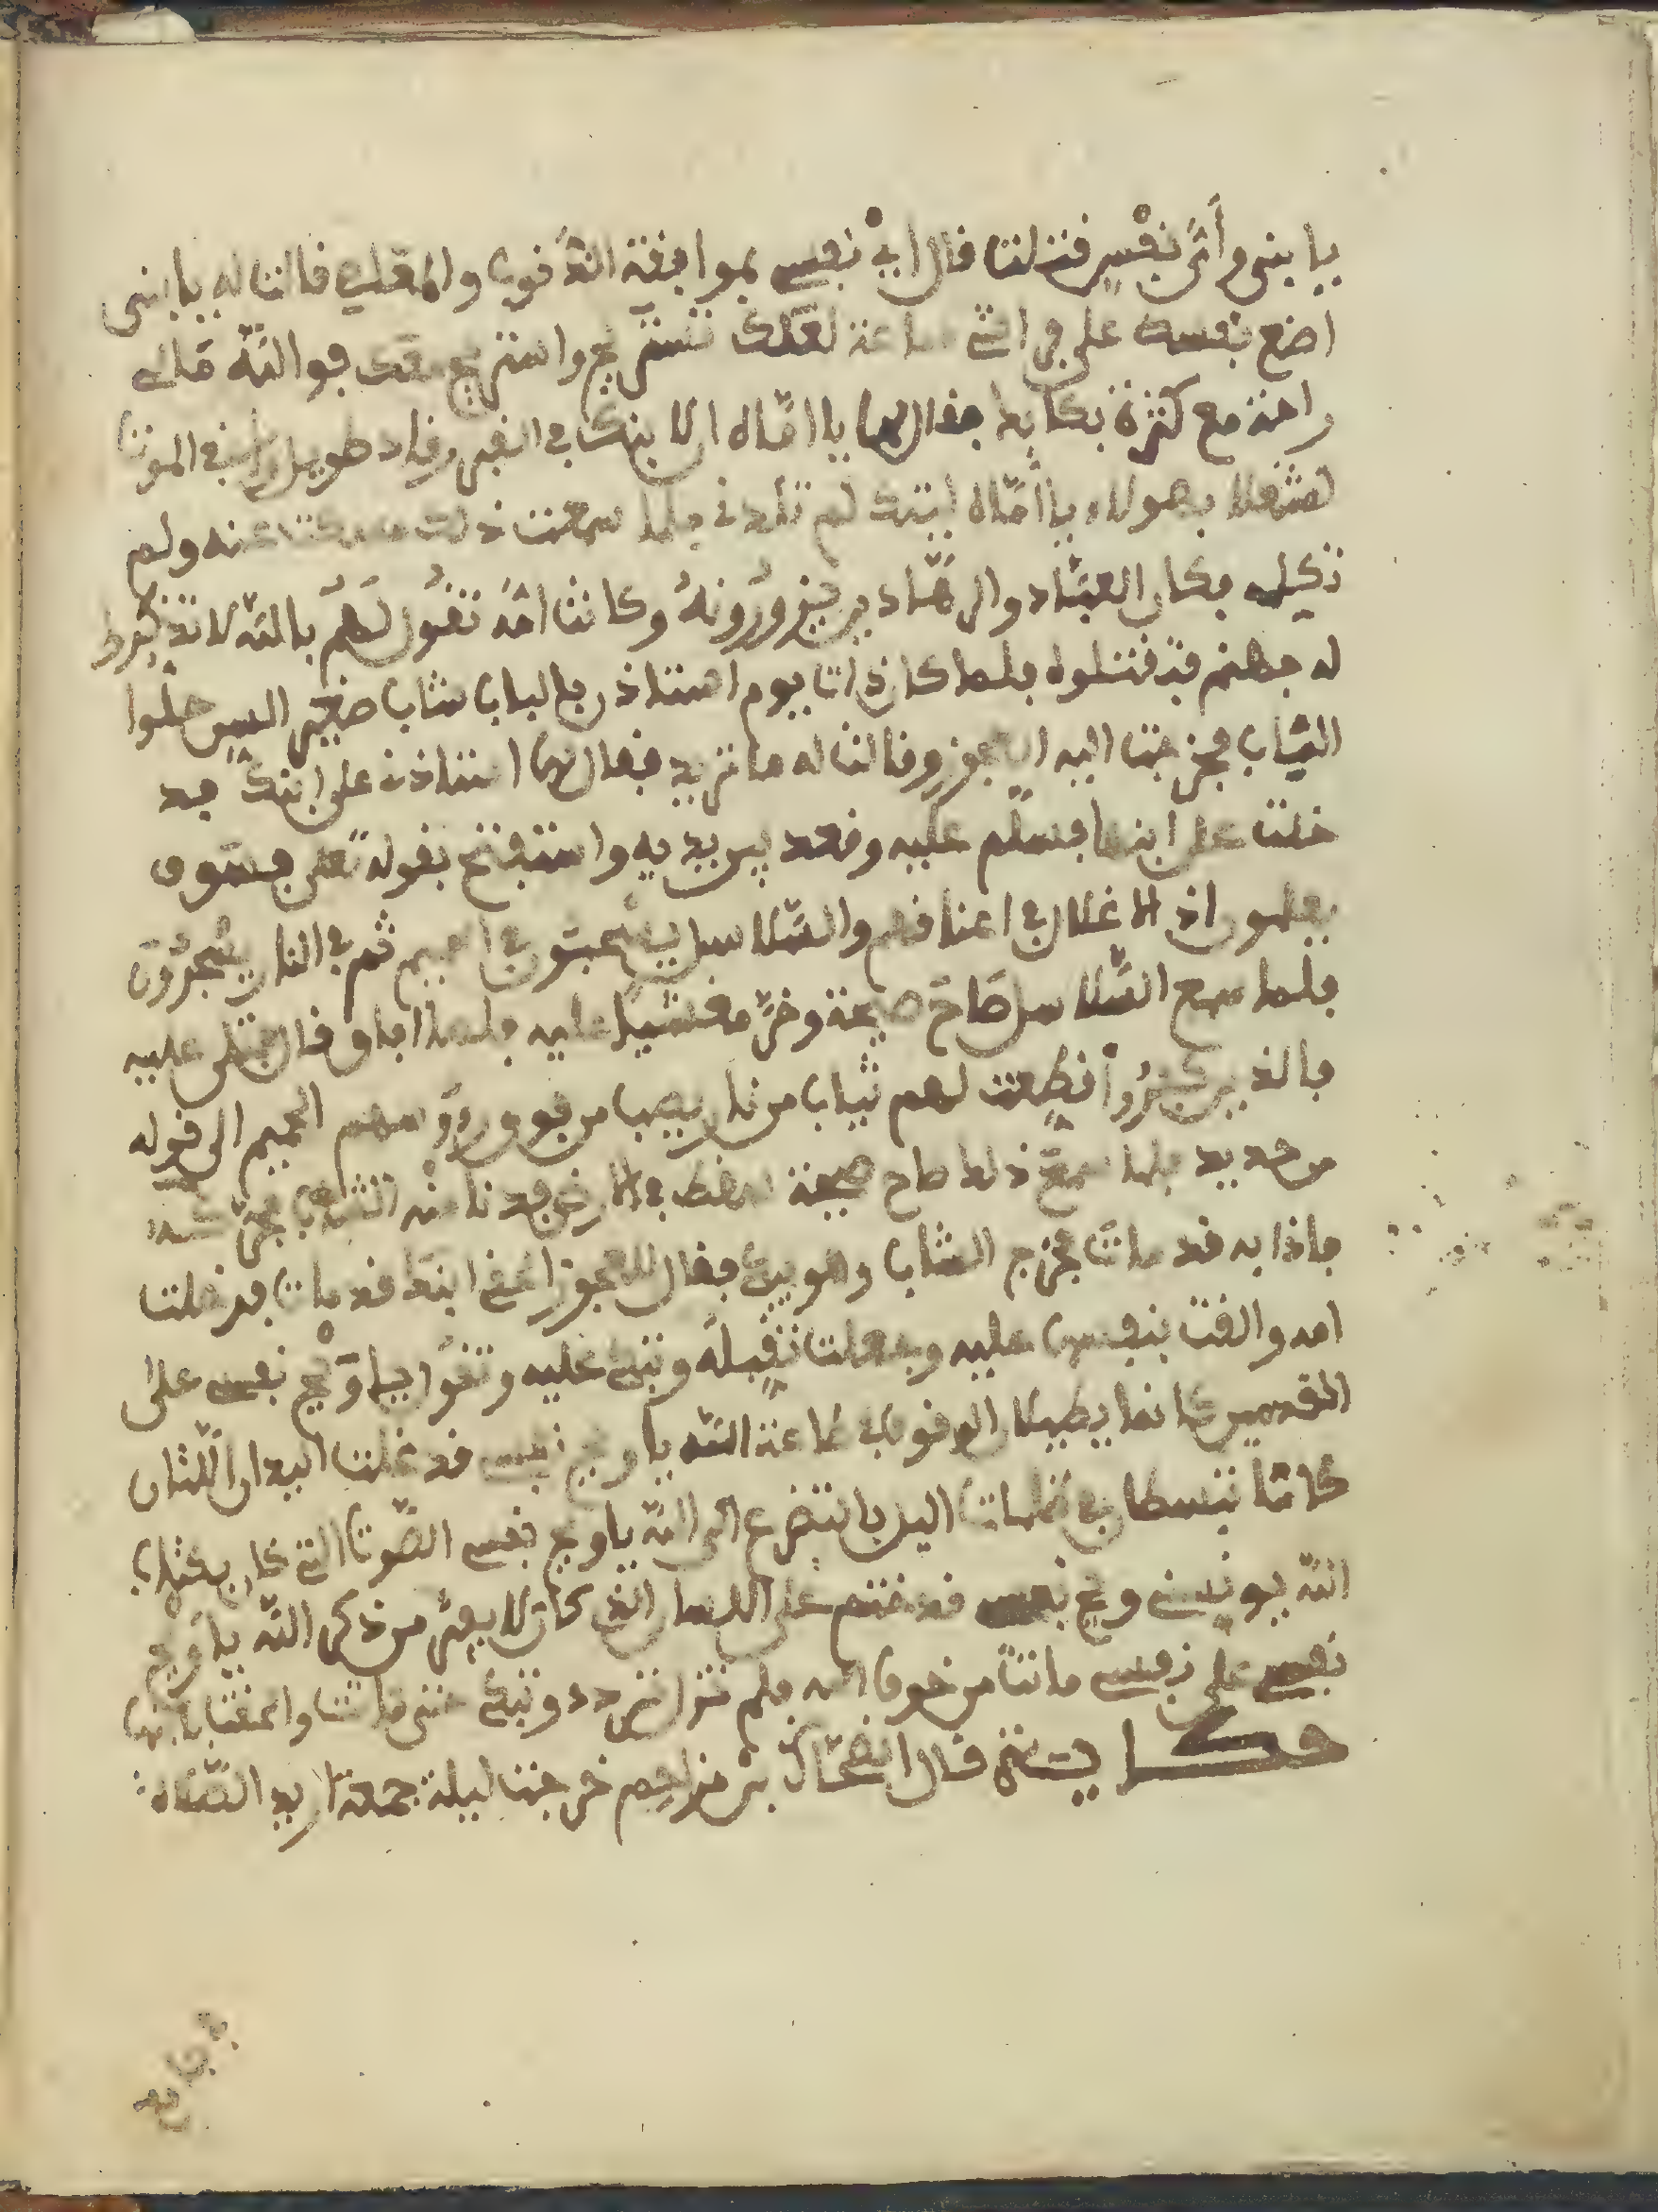 يا بني وأي نفس قتلت قال أي نفسي بموافقة الذنوب والمعاصي قالت له يا بني
اضع نفسك على فراشي ساعة لعلك تستريح واستريح معك فوالله مالي
راحة مع كثرة بكائك فقال لها يا اماه ان لابنك في القبر رقاد طويل وان في الموت
لشغلا بهولاء يا أماه ليتك لم تلدني فلما سمعت ذلك سكتت عنه ولم
تكلمه فكان العباد والزهاد يزورونه وكانت امه تقول لهم بالله لا تذكروا
له جهنم فتقتلوه فلما كان ذات يوم استاذن بالباب شاب صغير السن حلو
الشاب فخرجت اليه العجوز وقالت له ما تريد فقال لها استاذني على ابنك فد
خلت على ابنها فسلم عليه وقعد بين يديه واستفتح بقوله تعلى فسوف
يعلمون اذ الاغلال في اعناقهم والسلاسل يسحبون في الحميم ثم في النار يسجرون
فلما سمع السلاسل صاح صيحة وخر مغشيا عليه فلما افاق قال تتلى عليه
فالذين كفروا قطعت لهم ثياب من نار يصب من فوق رؤوسهم الحميم الى قوله
من حديد فلما سمع ذلك صاح صيحة سقط في الارض فدنا منه الشاب فحركه
فاذا به قد مات فخرج الشاب وهو يبكي فقال للعجوز ابنك قد مات فدخلت
امه والقت بنفسها عليه وجعلت تقبله وتبكي عليه وتقول يا ويح نفسي على
القدمين كانما يطيلان الوقوف في طاعة الله يا ويح نفسي قد غلت اليدان اللتان
كانتا تبسطان في ظلمات اليل بالتضرع الى الله يا ويح نفسي الصوت الذي كان بكتاب
الله يونسني ويح نفسي قد ختم على اللسان الذي كان لا يفتر من ذكر الله يا ويح
نفسي على نفسي ماتت من خوف الله فلم تزل تردد وتبكي حتى ماتت والحقت بابنها
حكاية قال الضحاك بن مزاحم خرجت ليلة جمعة اريد الصلاة